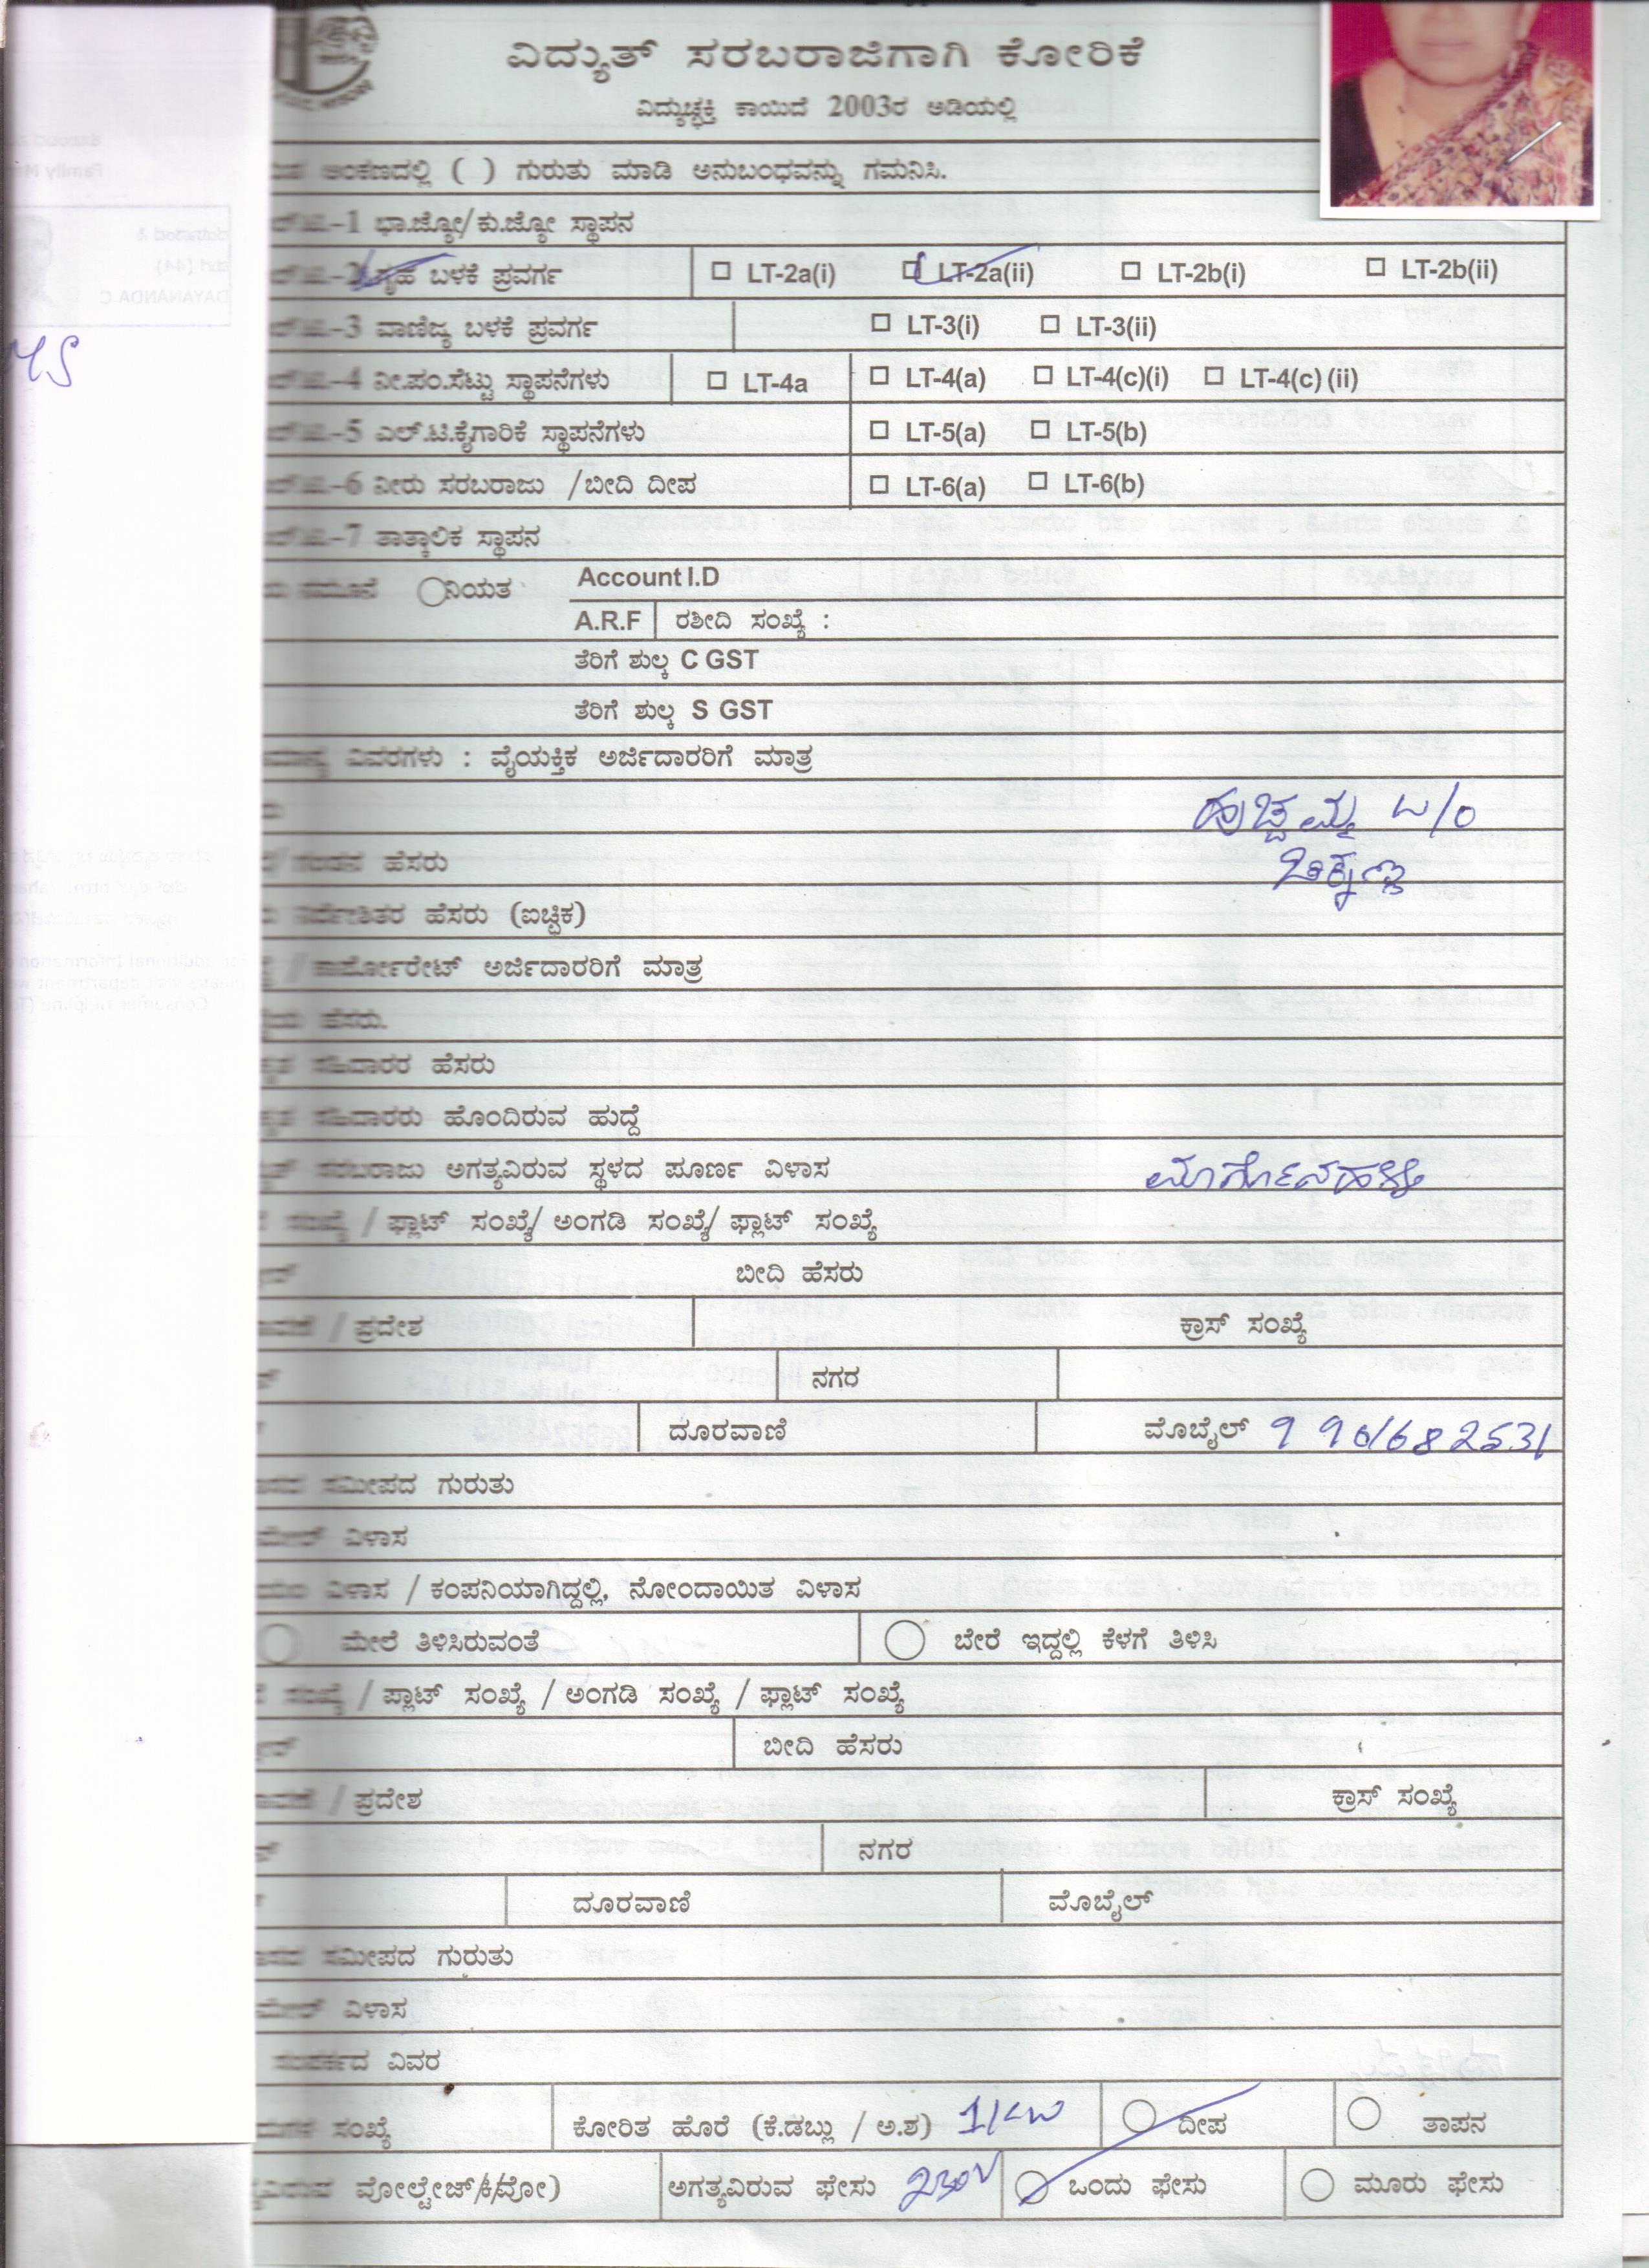 ವಿದ್ಯುತ್ ಸರಬರಾಜಿಗಾಗಿ ಕೋರಿಕೆ
ವಿದ್ಯುಚ್ಛಕ್ತಿ ಕಾಯಿದೆ 2003ರ ಅಡಿಯಲ್ಲಿ
ಅಂಕಣದಲ್ಲಿ ( ) ಗುರುತು ಮಾಡಿ ಅನುಬಂಧವನ್ನು ಗಮನಿಸಿ.
-1 ಭಾ.ಜ್ಯೋ/ಕು.ಜ್ಯೋ ಸ್ಥಾಪನ
-2 ಗೃಹ ಬಳಕೆ ಪ್ರವರ್ಗ LT-2a(i) LT-2a(ii) LT-2b(i) LT-2b(ii)
-3 ವಾಣಿಜ್ಯ ಬಳಕೆ ಪ್ರವರ್ಗ LT-3(i) LT-3(ii)
-4 ನೀ.ಪಂ.ಸೆಟ್ಟು ಸ್ಥಾಪನೆಗಳು LT-4a LT-4(a) LT-4(c)(i) LT-4(c) (ii)
-5 ಎಲ್.ಟಿ.ಕೈಗಾರಿಕೆ ಸ್ಥಾಪನೆಗಳು LT-5(a) LT-5(b)
-6 ನೀರು ಸರಬರಾಜು /ಬೀದಿ ದೀಪ LT-6(a) LT-6(b)
-7 ತಾತ್ಕಾಲಿಕ ಸ್ಥಾಪನ
ನಮೂನೆ ನಿಯತ Account I.D
A.R.F ರಶೀದಿ ಸಂಖ್ಯೆ :
ತೆರಿಗೆ ಶುಲ್ಕ C GST
ತೆರಿಗೆ ಶುಲ್ಕ S GST
ವಿವರಗಳು : ವೈಯಕ್ತಿಕ ಅರ್ಜಿದಾರರಿಗೆ ಮಾತ್ರ
ಹುಚ್ಚಮ್ಮ W/O
ಹೆಸರು ಚಿಕ್ಕಣ್ಣ
ನಿರ್ದೇಶಿತರ ಹೆಸರು (ಐಚ್ಛಿಕ)
/ ಕಾರ್ಪೋರೇಟ್ ಅರ್ಜಿದಾರರಿಗೆ ಮಾತ್ರ
ಹೆಸರು.
ಸಹಿದಾರರ ಹೆಸರು
ಸಹಿದಾರರು ಹೊಂದಿರುವ ಹುದ್ದೆ
ಸರಬರಾಜು ಅಗತ್ಯವಿರುವ ಸ್ಥಳದ ಪೂರ್ಣ ವಿಳಾಸ ಮಾರ್ಗೋನಹಳ್ಳಿ
ಸಂಖ್ಯೆ / ಫ್ಲಾಟ್ ಸಂಖ್ಯೆ/ ಅಂಗಡಿ ಸಂಖ್ಯೆ/ ಫ್ಲಾಟ್ ಸಂಖ್ಯೆ
ಬೀದಿ ಹೆಸರು
/ ಪ್ರದೇಶ ಕ್ರಾಸ್ ಸಂಖ್ಯೆ
ನಗರ
ದೂರವಾಣಿ ಮೊಬೈಲ್ 9901682531
ಸಮೀಪದ ಗುರುತು
ವಿಳಾಸ
ವಿಳಾಸ / ಕಂಪನಿಯಾಗಿದ್ದಲ್ಲಿ, ನೋಂದಾಯಿತ ವಿಳಾಸ
ಮೇಲೆ ತಿಳಿಸಿರುವಂತೆ ಬೇರೆ ಇದ್ದಲ್ಲಿ ಕೆಳಗೆ ತಿಳಿಸಿ
ಸಂಖ್ಯೆ / ಪ್ಲಾಟ್ ಸಂಖ್ಯೆ / ಅಂಗಡಿ ಸಂಖ್ಯೆ / ಫ್ಲಾಟ್ ಸಂಖ್ಯೆ
ಬೀದಿ ಹೆಸರು
/ ಪ್ರದೇಶ ಕ್ರಾಸ್ ಸಂಖ್ಯೆ
ನಗರ
ದೂರವಾಣಿ ಮೊಬೈಲ್
ಸಮೀಪದ ಗುರುತು
ವಿಳಾಸ
ಸಂಪರ್ಕದ ವಿವರ
ಸಂಖ್ಯೆ ಕೋರಿತ ಹೊರೆ (ಕೆ.ಡಬ್ಲು / ಅ.ಶ) 1KW ದೀಪ ತಾಪನ
ವೋಲ್ಟೇಜ್ ಅಗತ್ಯವಿರುವ ಫೇಸು 230V ಒಂದು ಫೇಸು ಮೂರು ಫೇಸು